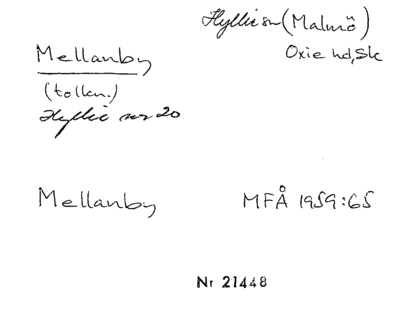 Hyllie sn (Malmö)
Oxie hd, Sk
Mellanby
(tolkn.)
Hyllie nr 20
Mellanby MFÅ 1959:65
Nr 21448